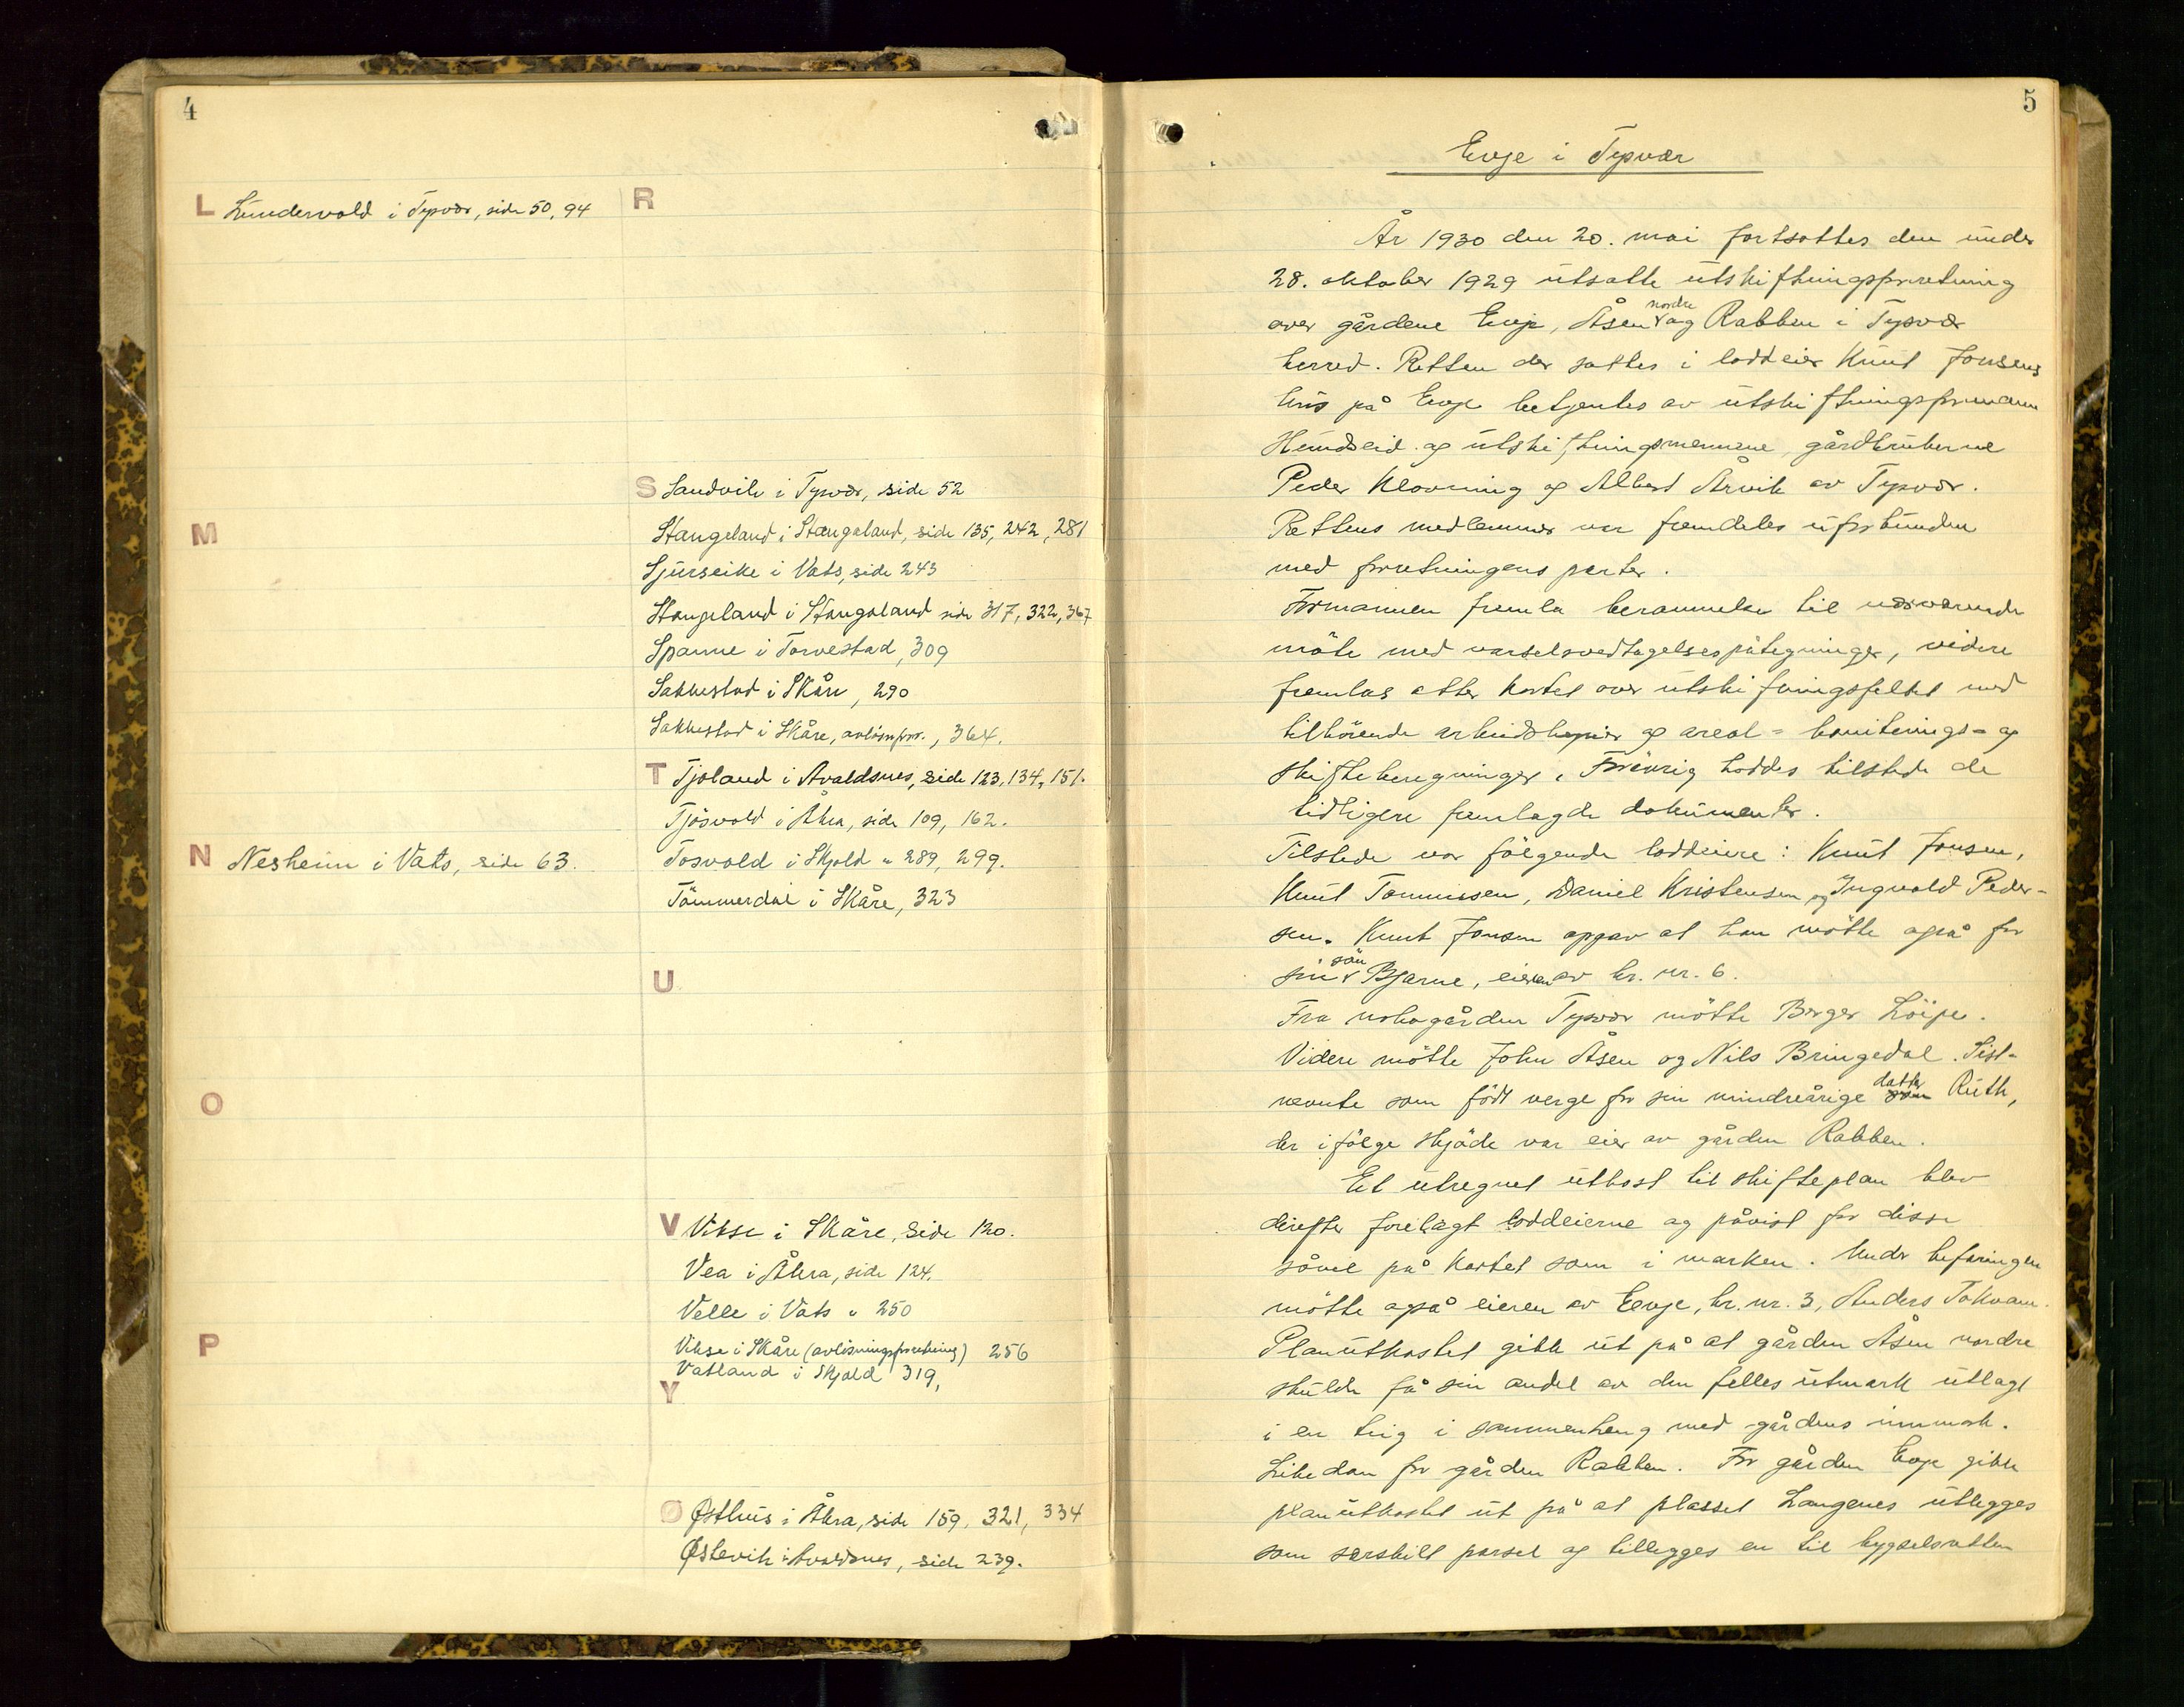 4
L Lundervold i Tysvær, side 50, 94
M
N Nesheim i Vats, side 63.
O
P
R
S Sandvik i Tysvær, side 52
Stangeland i Stangaland, side 135, 242, 281
Sjurseike i Vats, side 243
Stangeland i Stangaland side 317, 322, 367
Spanne i Torvestad, 309
Sakkestad i Skåre, 290
Sakkestad i Skåre, avløsn.forr., 364.
T Tjoland i Avaldsnes, side 123, 134, 151.
Tjösvold i Åkra, side 109, 162.
Tosvold i Skjold " 289, 299.
Tömmerdal i Skåre, 323
U
V Vikse i Skåre, side 120.
Vea i Åkra, side 124.
Velle i Vats " 250
Vikse i Skåre (avløsningsforretning) 256
Vatland i Skjold 319,
Y
Ø Østhus i Åkra, side 159, 321, 334
Østevik i Avaldsnes, side 239.
5
Evje i Tysvær
År 1930 den 20. mai fortsattes den under
28. oktober 1929 utsatte utskiftningsforretning
over gårdene Evje, Åsen nordre og Rabben i Tysvær
herred. Retten der sattes i loddeier Knut Jonsens
hus på Evje betjentes av utskiftningsformann
Hundseid og utskiftningsmennene, gårdbrukerne
Peder Klovning og Albert Årvik av Tysvær.
Rettens medlemmer var fremdeles uforbunden
med forretningens parter.
Formannen fremla berammelse til nærværende
möte med varselsvedtagelsespåtegninger, videre
fremlas etter kartet over utskiftningsfeltet med
tilhörende arbeidskopier og areal- boniterings- og
skifteberegninger. Forövrig haddes tilstede de
tidligere fremlagde dokumenter.
Tilstede var fölgende loddeiere: Knut Jonsen,
Knut Tommessen, Daniel Kristensen og Ingvald Peder-
sen. Knut Jonsen opgav at han mötte også for
sin sön Bjarne, eieren av br. nr. 6.
Fra nabogården Tysvær mötte Berger Löipe.
Videre mötte John Åsen og Nils Bringedal. Sist-
nevnte som födt verge for sin mindreårige datter Ruth,
der ifölge skjöde var eier av gården Rabben.
Et utregnet utkast til skifteplan blev
derefter forelagt loddeierne og påvist for disse
såvel på kartet som i marken. Under befaringen
mötte også eieren av Evje, br. nr. 3, Anders Tokvam.
Planutkastet gikk ut på at gården Åsen nordre
skulde få sin andel av den felles utmark utlagt
i en teig i sammenheng med gårdens innmark.
Likedan for gården Rabben. For gården Evje gikk
planutkastet ut på at plasset Langenes utlegges
som særskilt parsel og tillegges en til bygselsretten